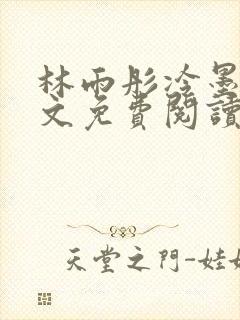 林雨彤冷墨
文免費閱讀
天堂之門-娃娃